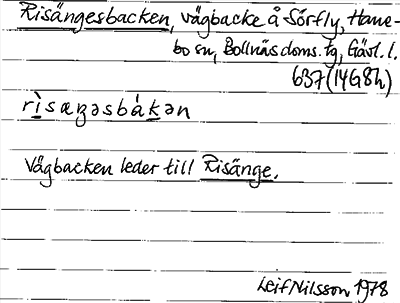 Risängesbacken, vägbacke å Sörfly, Hane-
bo sn, Bollnäs doms. tg, Gävl. l.
637 (14G8h)
rìsæŋəsbàkən
Vägbacken leder till Risänge.
Leif Nilsson 1978